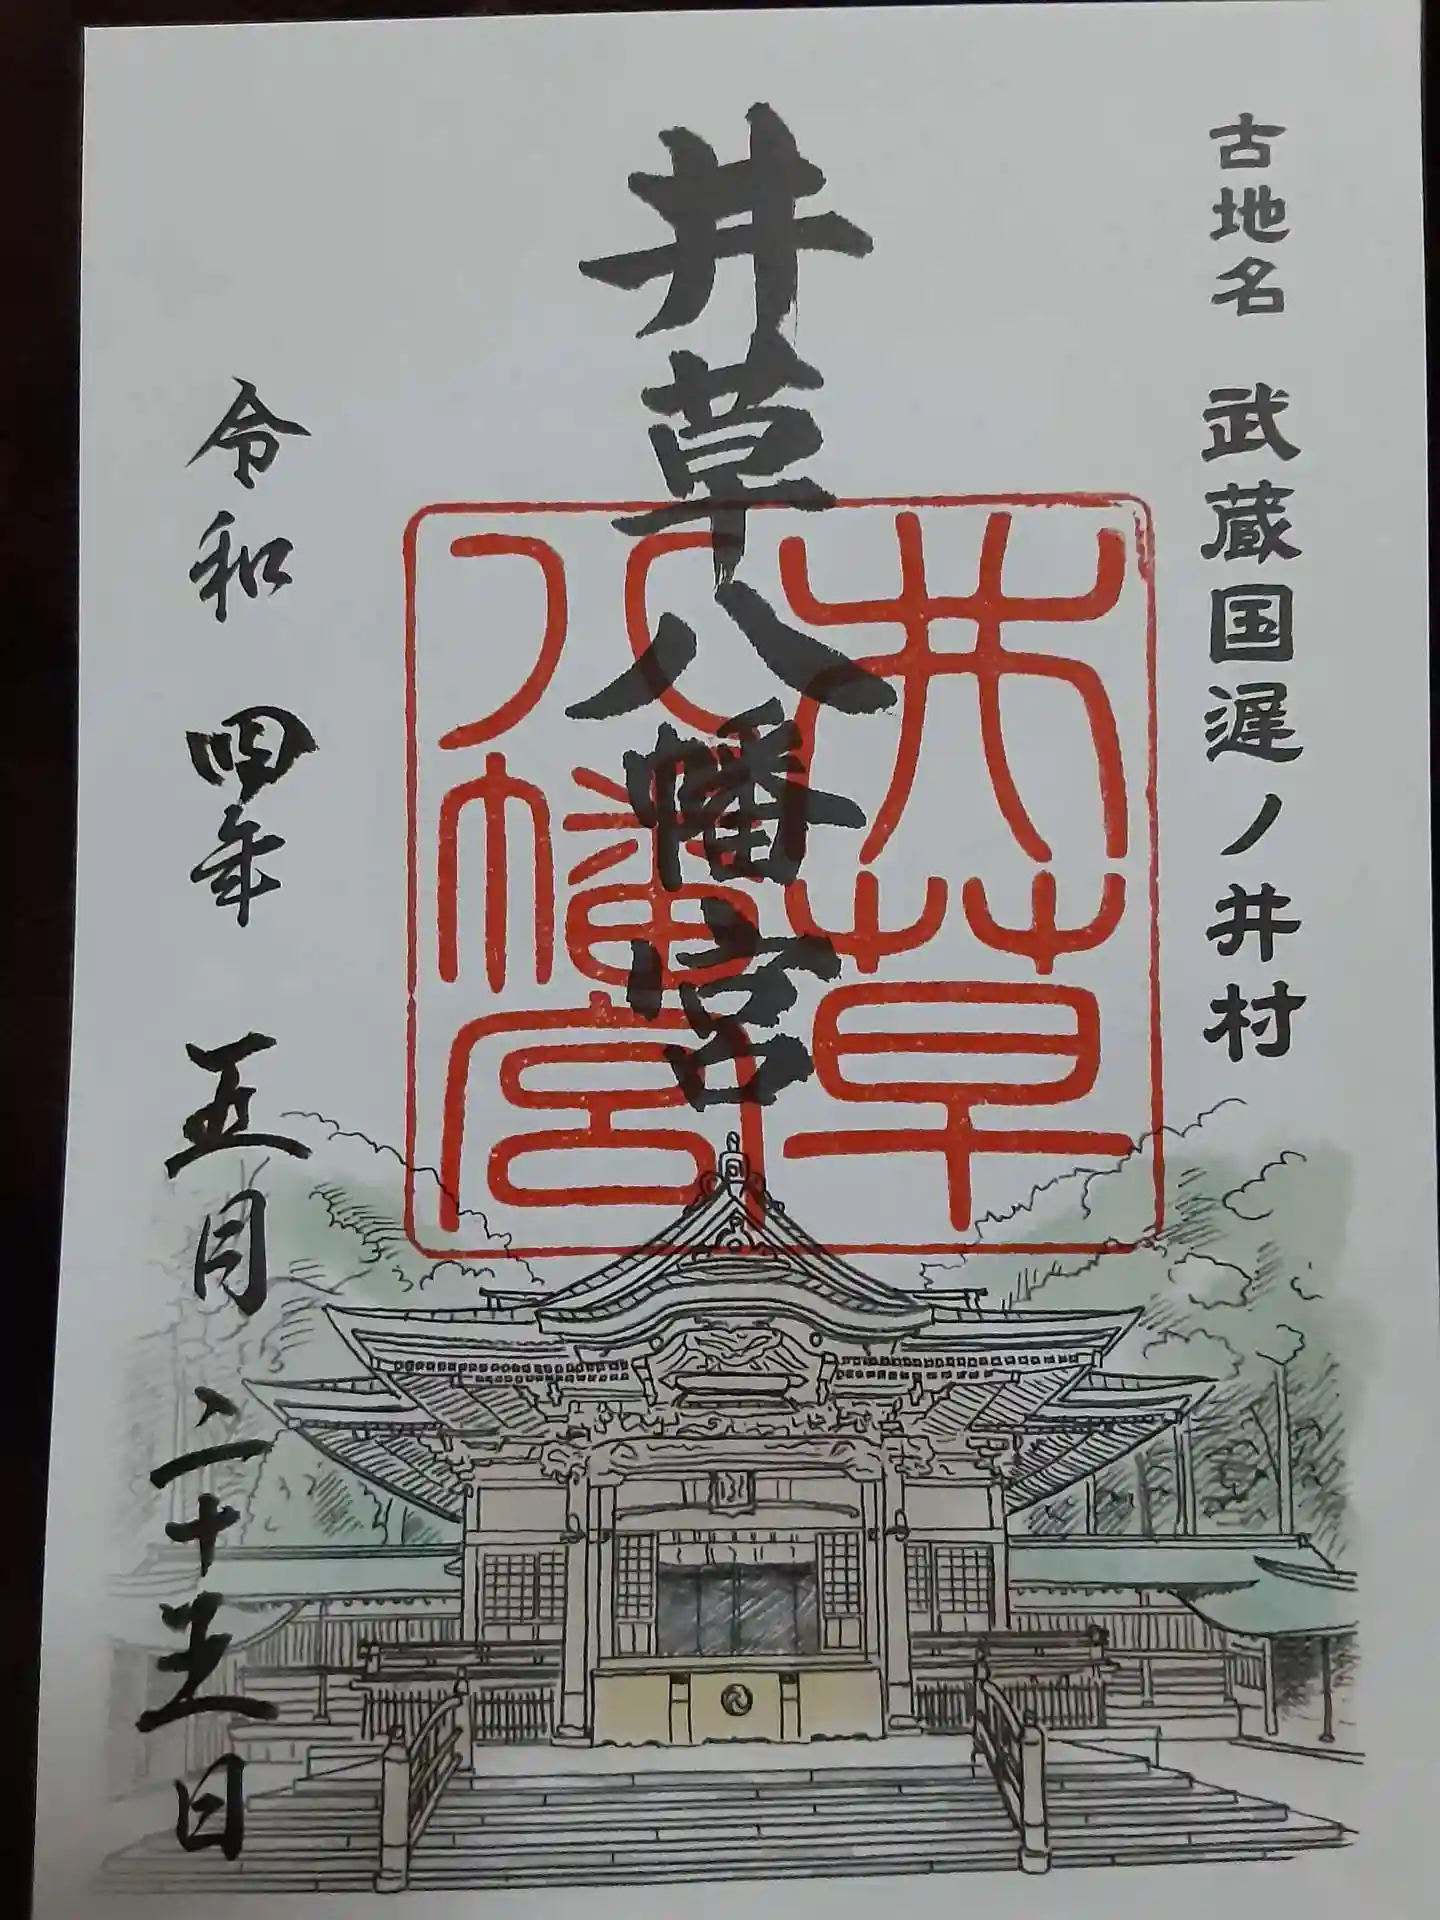 古地名 武蔵国遅ノ井村
井草八幡宮
井草八幡宮
令和四年五月二十五日